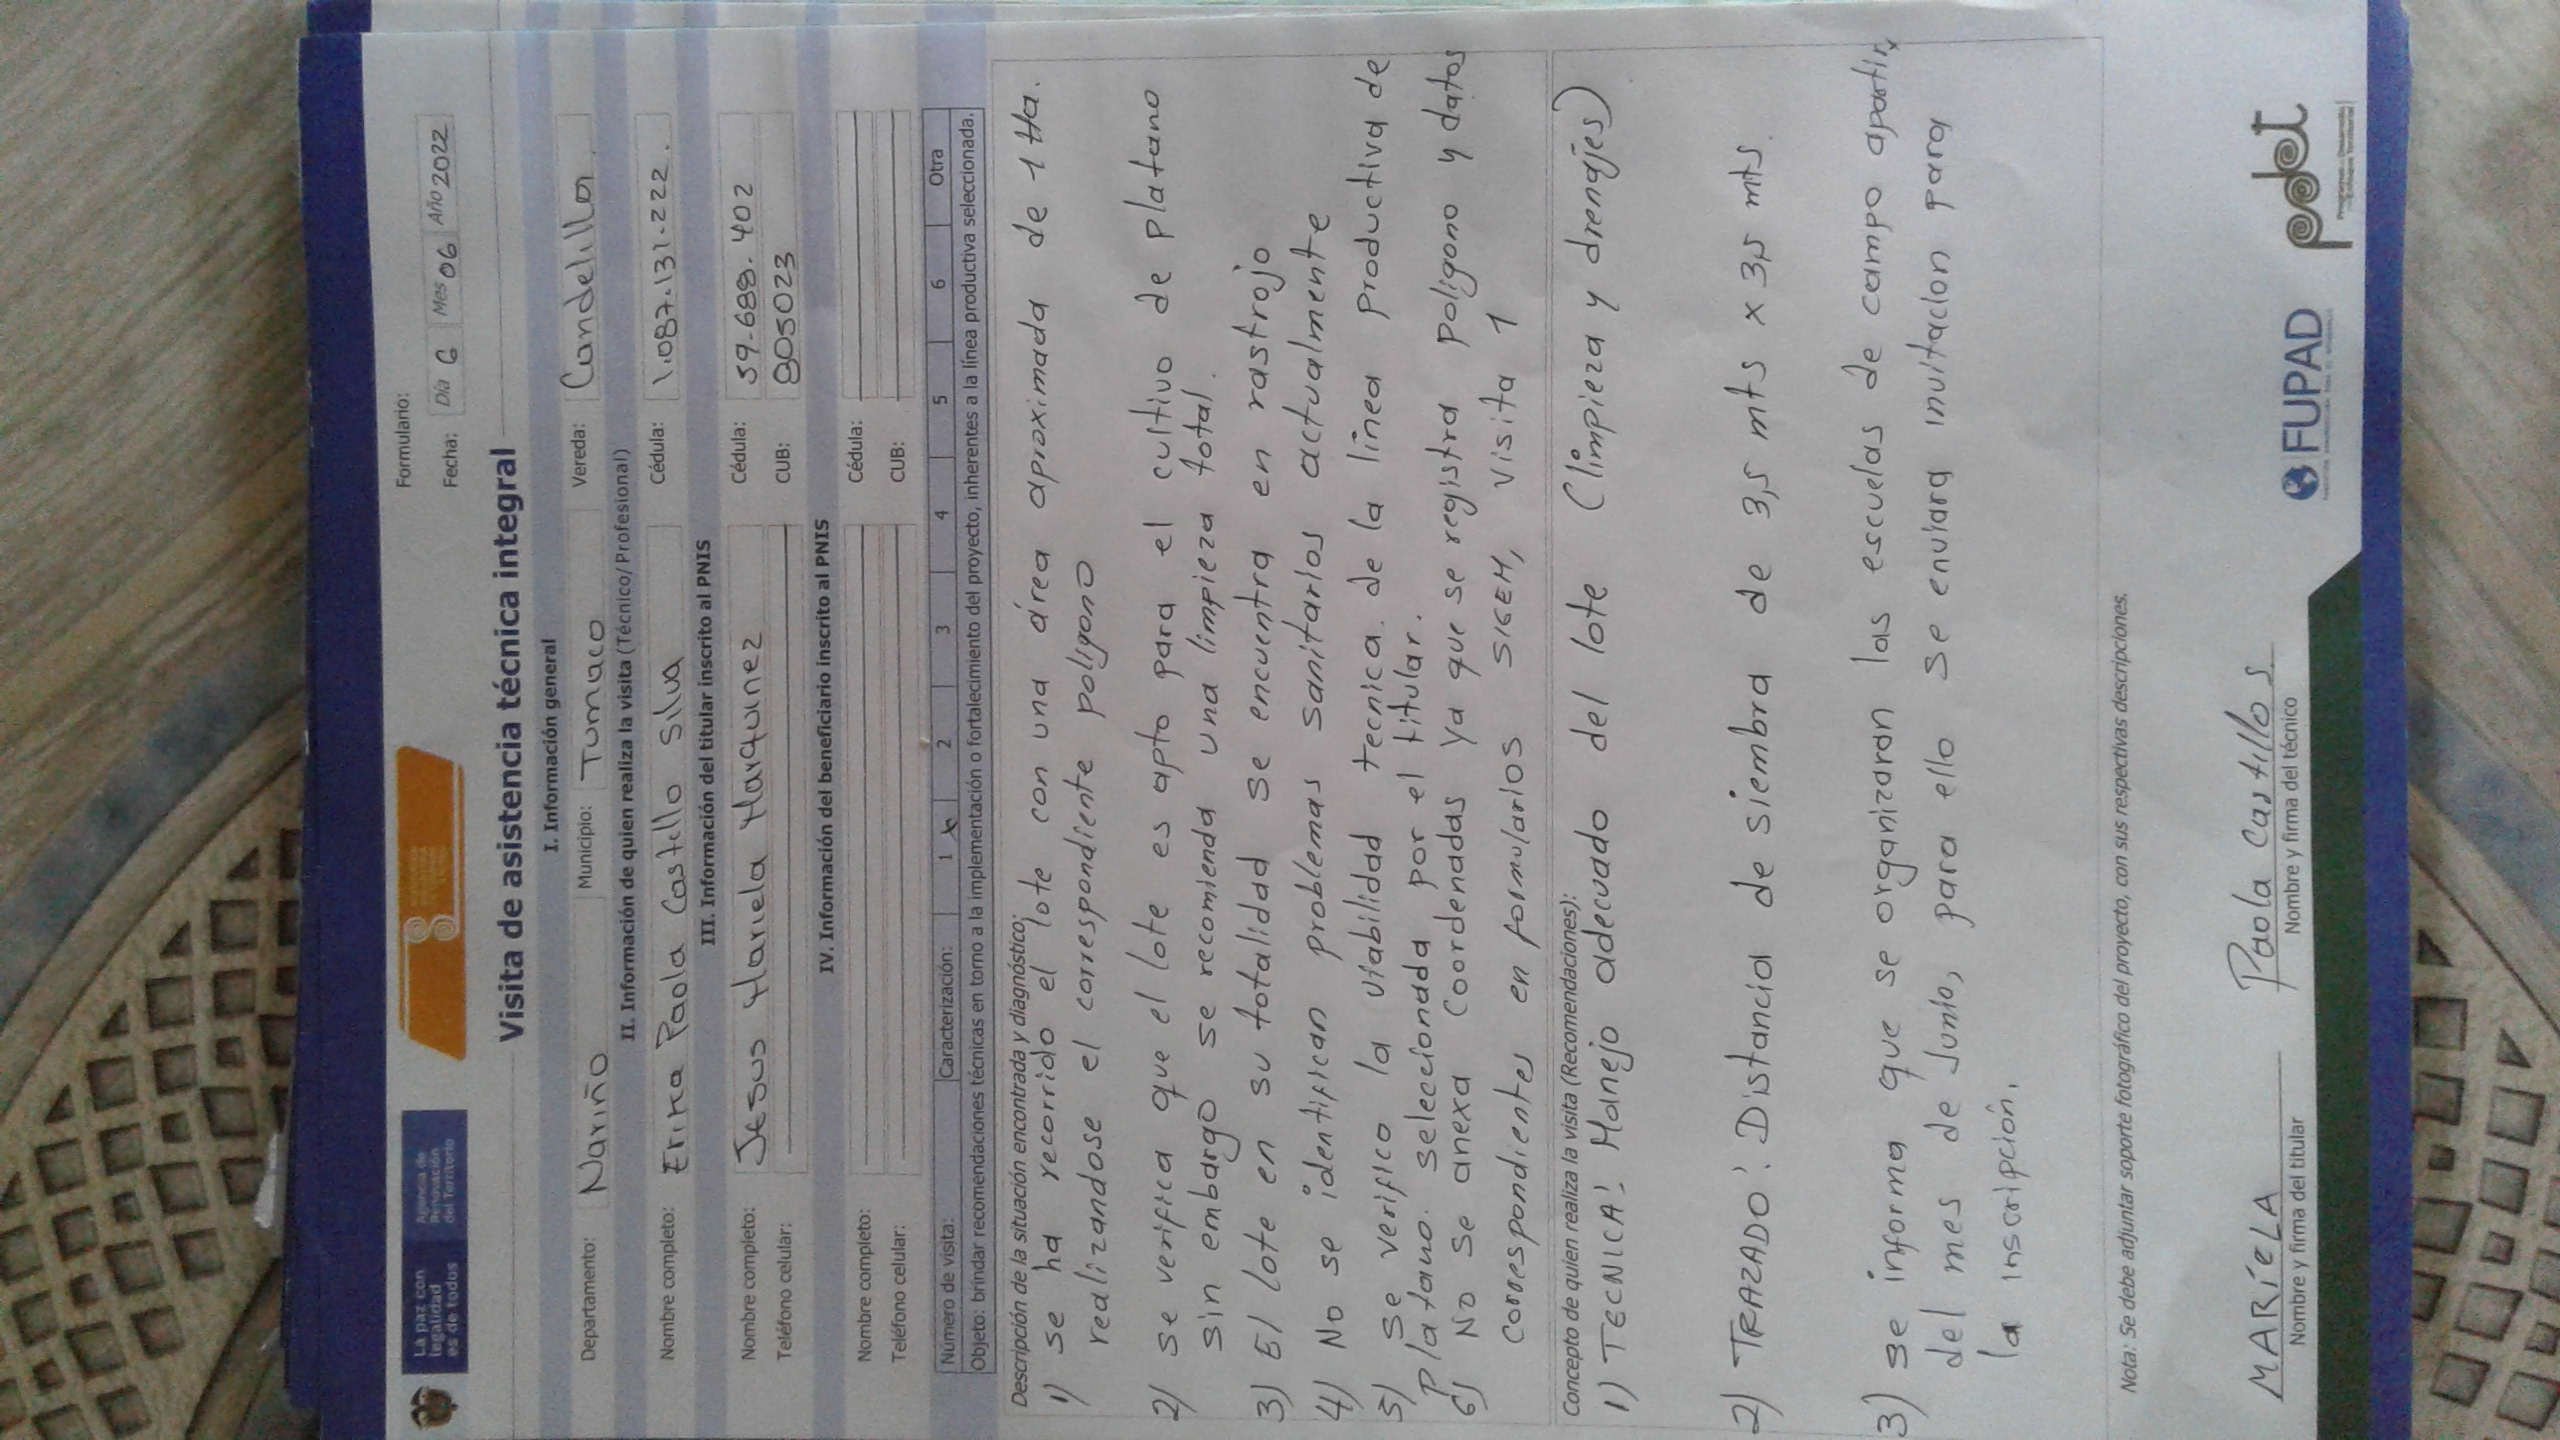 La paz con
legalidad
es de todos
Agencia de
Renovación
del Territorio
Formulario:
Fecha: Día 6 Mes 06 Año 2022
Visita de asistencia técnica integral
I. Información general
Departamento: Nariño Municipio: Tumaco Vereda: Candelilla.
II. Información de quien realiza la visita (Técnico/ Profesional)
Nombre completo: Erika Paola Castillo Silva Cédula: 1.087.131.222.
III. Información del titular inscrito al PNIS
Nombre completo: Jesus Mariela Marquinez Cédula: 59.688.402
Teléfono celular: CUB: 805023
IV. Información del beneficiario inscrito al PNIS
Nombre completo: Cédula:
Teléfono celular: CUB:
Número de visita: Caracterización: 1 x 2 3 4 5 6 Otra
Objeto: brindar recomendaciones técnicas en torno a la implementación o fortalecimiento del proyecto, inherentes a la línea productiva seleccionada.
Descripción de la situación encontrada y diagnóstico:
1) se ha recorrido el lote con una área aproximada de 1 Ha.
realizandose el correspondiente poligono
2) se verifica que el lote es apto para el cultivo de platano
sin embargo se recomienda una limpieza total.
3) El lote en su totalidad se encuentra en rastrojo
4) No se identifican problemas sanitarios actualmente
5) se verifico la viabilidad tecnica de la línea productiva de
platano. seleccionada por el titular.
6) No se anexa Coordenadas ya que se registra poligono y datos
correspondientes en formularios SIGEM, visita 1
Concepto de quien realiza la visita (Recomendaciones):
1) TECNICA: Manejo adecuado del lote (limpieza y drenajes)
2) TRAZADO: Distancia de siembra de 3,5 mts x 3,5 mts.
3) se informa que se organizaran las escuelas de campo apartir
del mes de Junio, para ello se enviara invitacion para
la inscripción.
Nota: Se debe adjuntar soporte fotográfico del proyecto, con sus respectivas descripciones.
MARIELA
Nombre y firma del titular
Paola Castillo S.
Nombre y firma del técnico
FUPAD
pdet